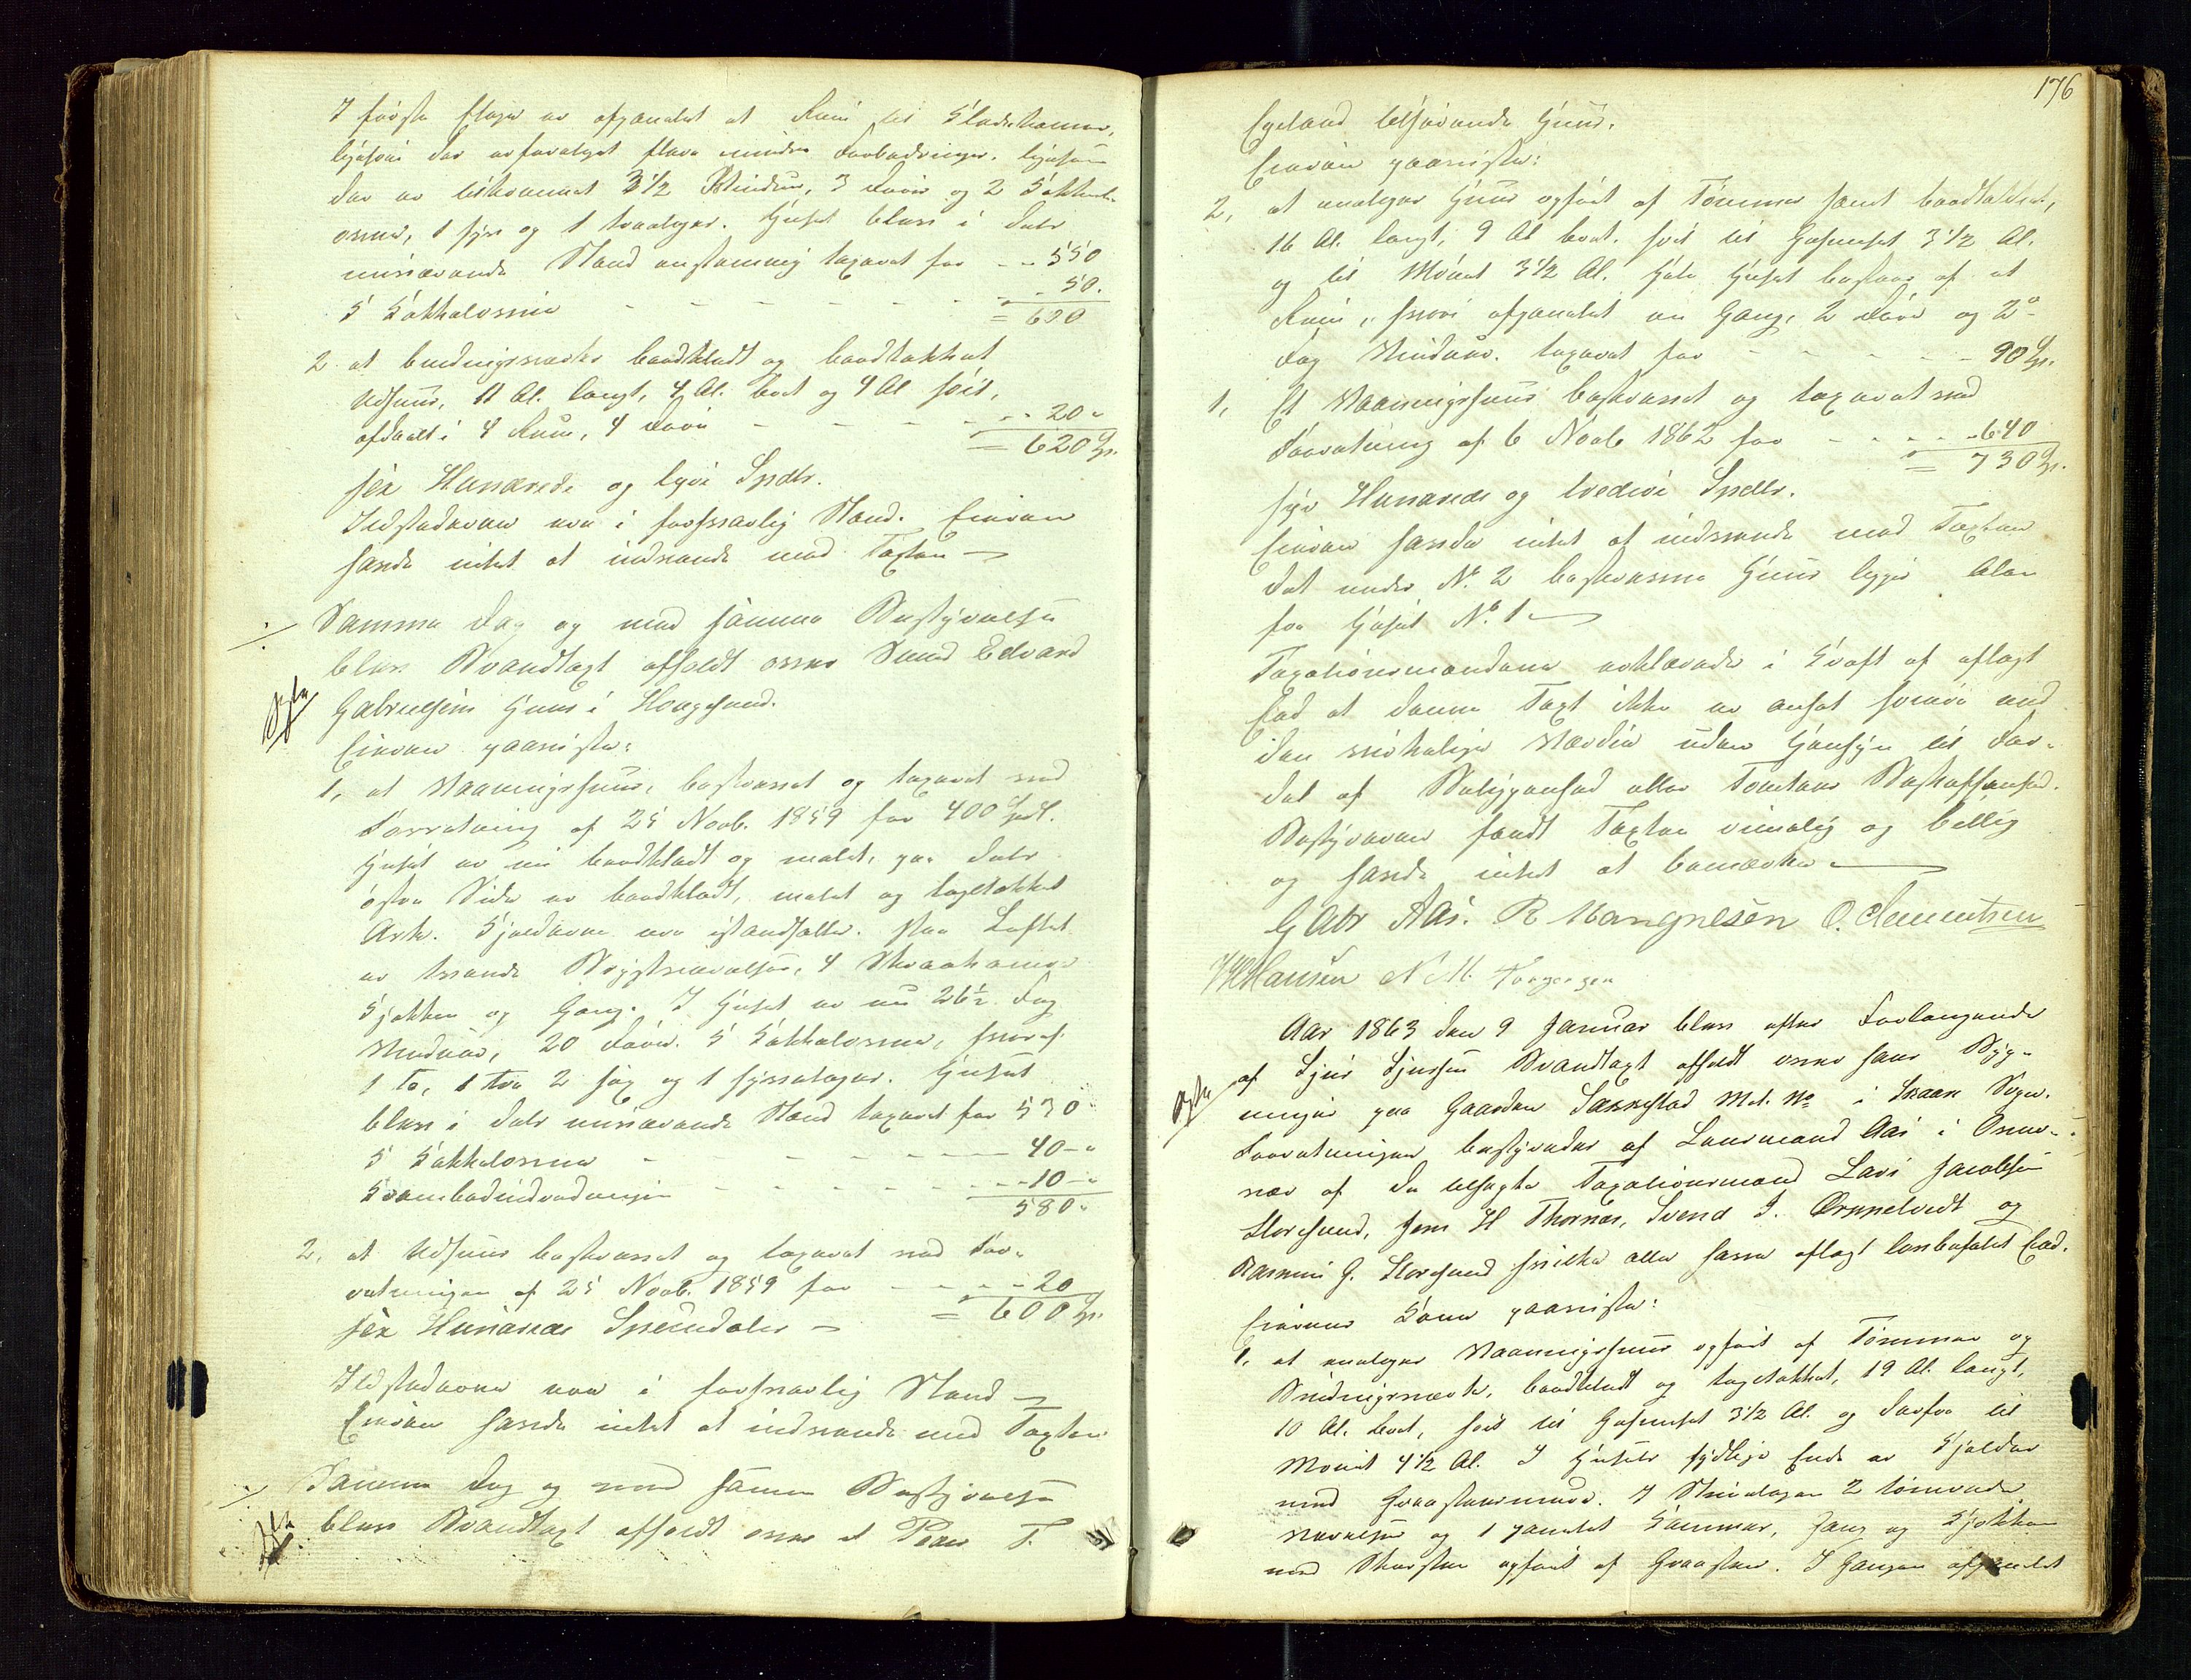 I første Etage er afpanelet et Rum til Kladekammer,
ligesom der er foretaget flere mindre Forbedringer, ligesom
der er tilkommet 3 1/2 Vinduer, 3 Døre og 2 Kakkel-
ovne, 1 fyr og 1 toetages. Huset blev i dets
nuværende Stand enstemmig taxeret for - - 550
5 Kakkelovne - - - - - - - 50.
= 600
2. et bindingsværks bordklædt og bordtækket
Udhuus, 11 Al. langt, 4 Al. bredt og 4 Al høit,
afdeelt i 4 Rum, 4 Døre - - - - - 20 "
= 620 Sp.
sex Hundrede og tyve Spdlr.
Ildstederne ere i forsvarlig Stand. Eieren
havde intet at indvende mod Taxten —
Samme Dag og med samme Bestyrelse
blev Brandtaxt afholdt over Svend Edvard
Gabrielsens Huus i Haugesund.
Eieren paaviste:
1, et Vaaningshuus, beskrevet og taxeret ved
Forretning af 25 Novb. 1859 for 400 Spdl.
Huset er nu bordklædt og malet, paa dets
østre Side er bordklædt, malet og tagtækket
Ark. Kjælderne ere istandsatte. Paa Loftet
er tvende Brystværelser, 4 Skraakamre
Kjøkken og Gang. I Huset er nu 26 1/2 Fag
Vinduer, 20 Døre. 5 Kakkelovne, hvoraf
1 to, 1 tre 2 sex og 1 fyretages. Huset
blev i dets nuværende Stand taxeret for 530 "
5 Kakkelovne - - - - - - 40 - "
Krambodindredningen - - - - - - 10 - "
580 "
2, et Udhuus beskrevet og taxeret ved For-
retningen af 25 Novb. 1859 for - - - - 20
= 600 Sp.
sex Hundrede Speciedaler —
Ildstederne ere i forsvarlig Stand —
Eieren havde intet at indvende mod Taxten
Samme Dag og med samme Bestyrelse
blev Brandtaxt afholdt over et Peder T.
176
Egeland tilhørende Huus.
Eieren paaviste:
2, et enetages Huus opført af Tømmer samt bordtækket,
16 Al. langt, 9 Al bredt. høit til Gesimset 3 1/2 Al.
og til Mønet 3 1/2 Al. Hele Huset bestaar af et
Rum, hvori afpanelet en Gang, 2 Døre og 2
Fag Vinduer. taxeret for - - - - - 90 Sp.
1, Et Vaaningshuus beskrevet og taxeret ved
Forretning af 6 Novb 1862 for - - - - 640
= 730 Sp.
syv Hundrede og tredive Spdlr.
Eieren havde intet at indvende mod Taxten
Det under No. 2 beskrevne Huus ligger Alen
fra Huset No. 1 —
Taxationsmændene erklærede i Kraft af aflagt
Eed at denne Taxt ikke er ansat høiere end
den virkelige Værdie uden Hensyn til For-
del af Beliggenhed eller Tomtens Beskaffenhed.
Bestyreren fandt Taxten rimelig og billig
og havde intet at bemærke. —
G Abr Aas. R Mangnesen O. Clemmetsen
HHansen N M. Torgersen
Aar 1863 den 9 Januar blev efter Forlangende
af Sjur Sjursen Brandtaxt afholdt over hans Byg-
ninger paa Gaarden Sakkestad Mat. No i Skaare Sogn.
Forretningen bestyredes af Lensmand Aas i Overvær
af de tilsagte Taxationsmænd Lars Jacobsen
Storesund, Jens H Thornes, Svend I. Ørpetvedt og
Rasmus G. Storesund hvilke alle have aflagt lovbefalet Eed.
Eierens Kone paaviste:
1, et enetages Vaaningshuus opført af Tømmer og
Bindingsværk, bordklædt og tagtækket, 19 Al. langt,
10 Al. bredt, høit til Gesimset 3 1/2 Al. og derfra til
Mønet 4 1/2 Al. I Husets sydlige Ende er Kjelder
med Graastensmuur. I Stueetagen 2 tømrede
Værelser og 1 panelet Kammer, Gang og Kjøkken
med Skorsten opført af Graasten. I Gangen afpanelet